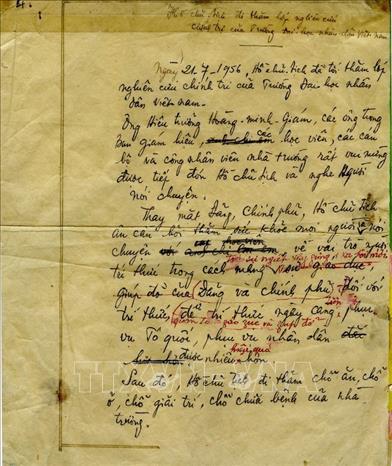 Hồ chủ tịch đi thăm lớp nghiên cứu
chính trị của Trường Đại học nhân dân Việt nam
Ngày 21-7-1956, Hồ chủ tịch đã tới thăm lớp
nghiên cứu chính trị của Trường Đại học nhân
dân Việt-nam.
Ông Hiệu trưởng Hoàng-minh-Giám, các ông trong
ban giám hiệu, các học viên, các cán
bộ và công nhân viên nhà trường rất vui mừng
được tiếp đón Hồ chủ tịch và nghe Người
nói chuyện.
Thay mặt Đảng, Chính phủ, Hồ chủ tịch
ân cần hỏi thăm sức khỏe mọi người và nói
chuyện về vai trò người
trí thức trong cách mạng sự giáo dục
giúp đỡ của Đảng và chính phủ đối với
trí thức để trí thức ngày càng phục
vụ Tổ quốc, phục vụ nhân dân
được nhiều hơn
Sau đó, Hồ chủ tịch đi thăm chỗ ăn, chỗ
ở, chỗ giải trí, chỗ chữa bệnh của nhà
trường.